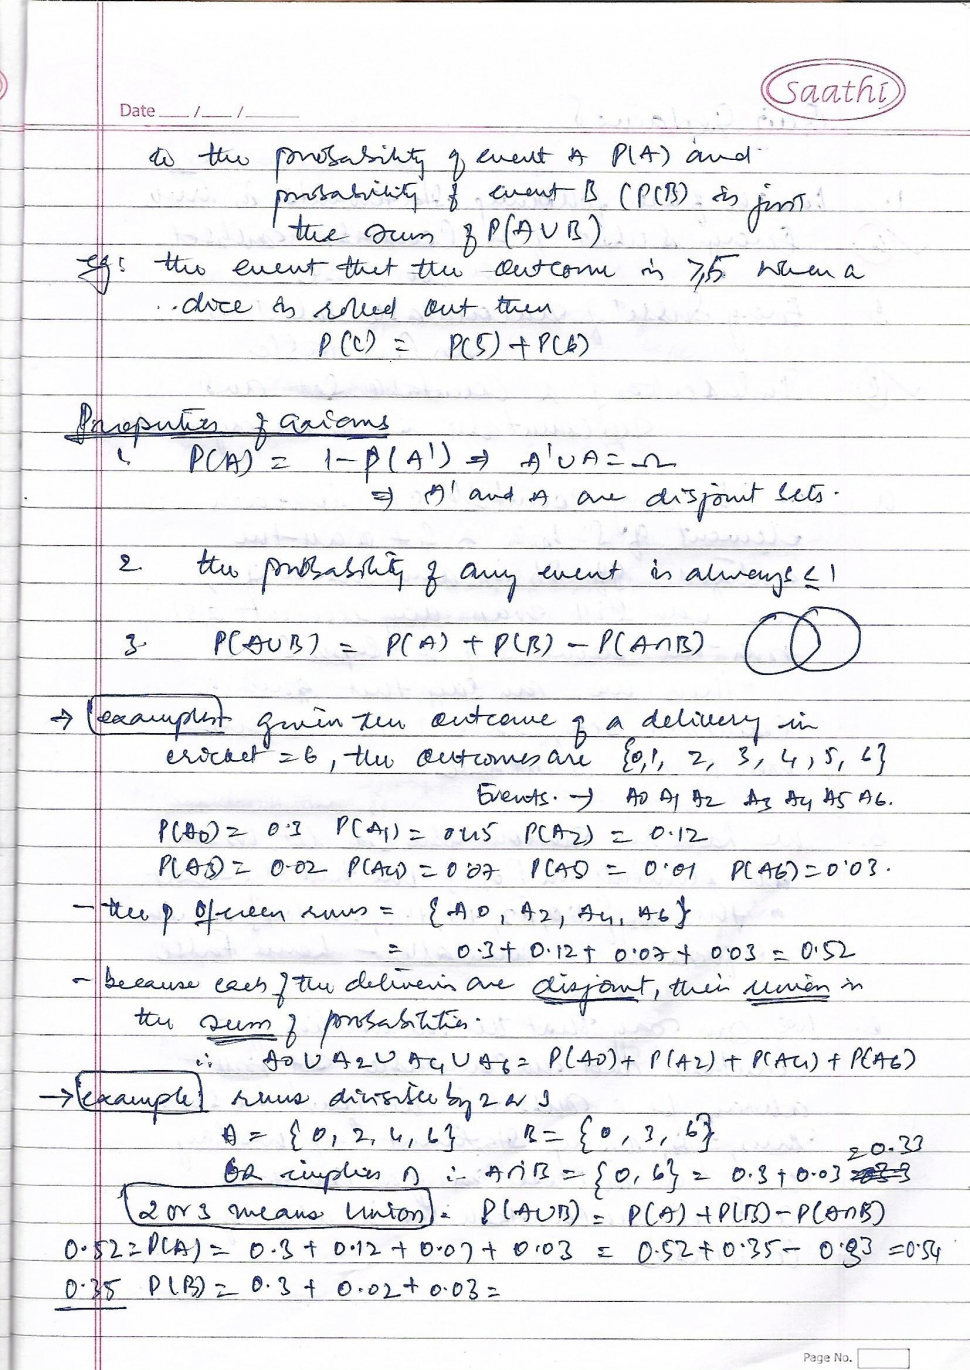 Saathi
Date __/__/____
to the probability of event A P(A) and
probability of event B (P(B) is just
the sum of P(A∪B)
eg: the event that the outcome is ≥5 when a
dice is rolled out then
P(C) = P(5)+P(6)
Properties of axioms
1. P(A) = 1-P(A') ⇒ A'∪A = Ω
⇒ A' and A are disjoint sets.
2. the probability of any event is always ≤ 1
3. P(A∪B) = P(A) + P(B) - P(A∩B)
→ example given the outcome of a delivery in
cricket = 6, the outcomes are {0,1, 2, 3, 4, 5, 6}
Events. → A0 A1 A2 A3 A4 A5 A6.
P(A0) = 0.3 P(A1) = 0.45 P(A2) = 0.12
P(A3) = 0.02 P(A4) = 0.07 P(A5) = 0.01 P(A6) = 0.03.
- the p of even runs = {A0, A2, A4, A6}
= 0.3 + 0.12 + 0.07 + 0.03 = 0.52
- because each of the deliveries are disjoint, their union is
the sum of probabilities.
∴ A0 ∪ A2 ∪ A4 ∪ A6 = P(A0) + P(A2) + P(A4) + P(A6)
→ example runs divisible by 2 or 3
A = {0, 2, 4, 6} B = {0, 3, 6}
OR implies ∩ ∴ A∩B = {0, 6} = 0.3 + 0.03 = 0.33
2 or 3 means union. P(A∪B) = P(A) + P(B) - P(A∩B)
0.52 = P(A) = 0.3 + 0.12 + 0.07 + 0.03 = 0.52 + 0.35 - 0.33 = 0.54
0.35 P(B) = 0.3 + 0.02 + 0.03 =
Page No.